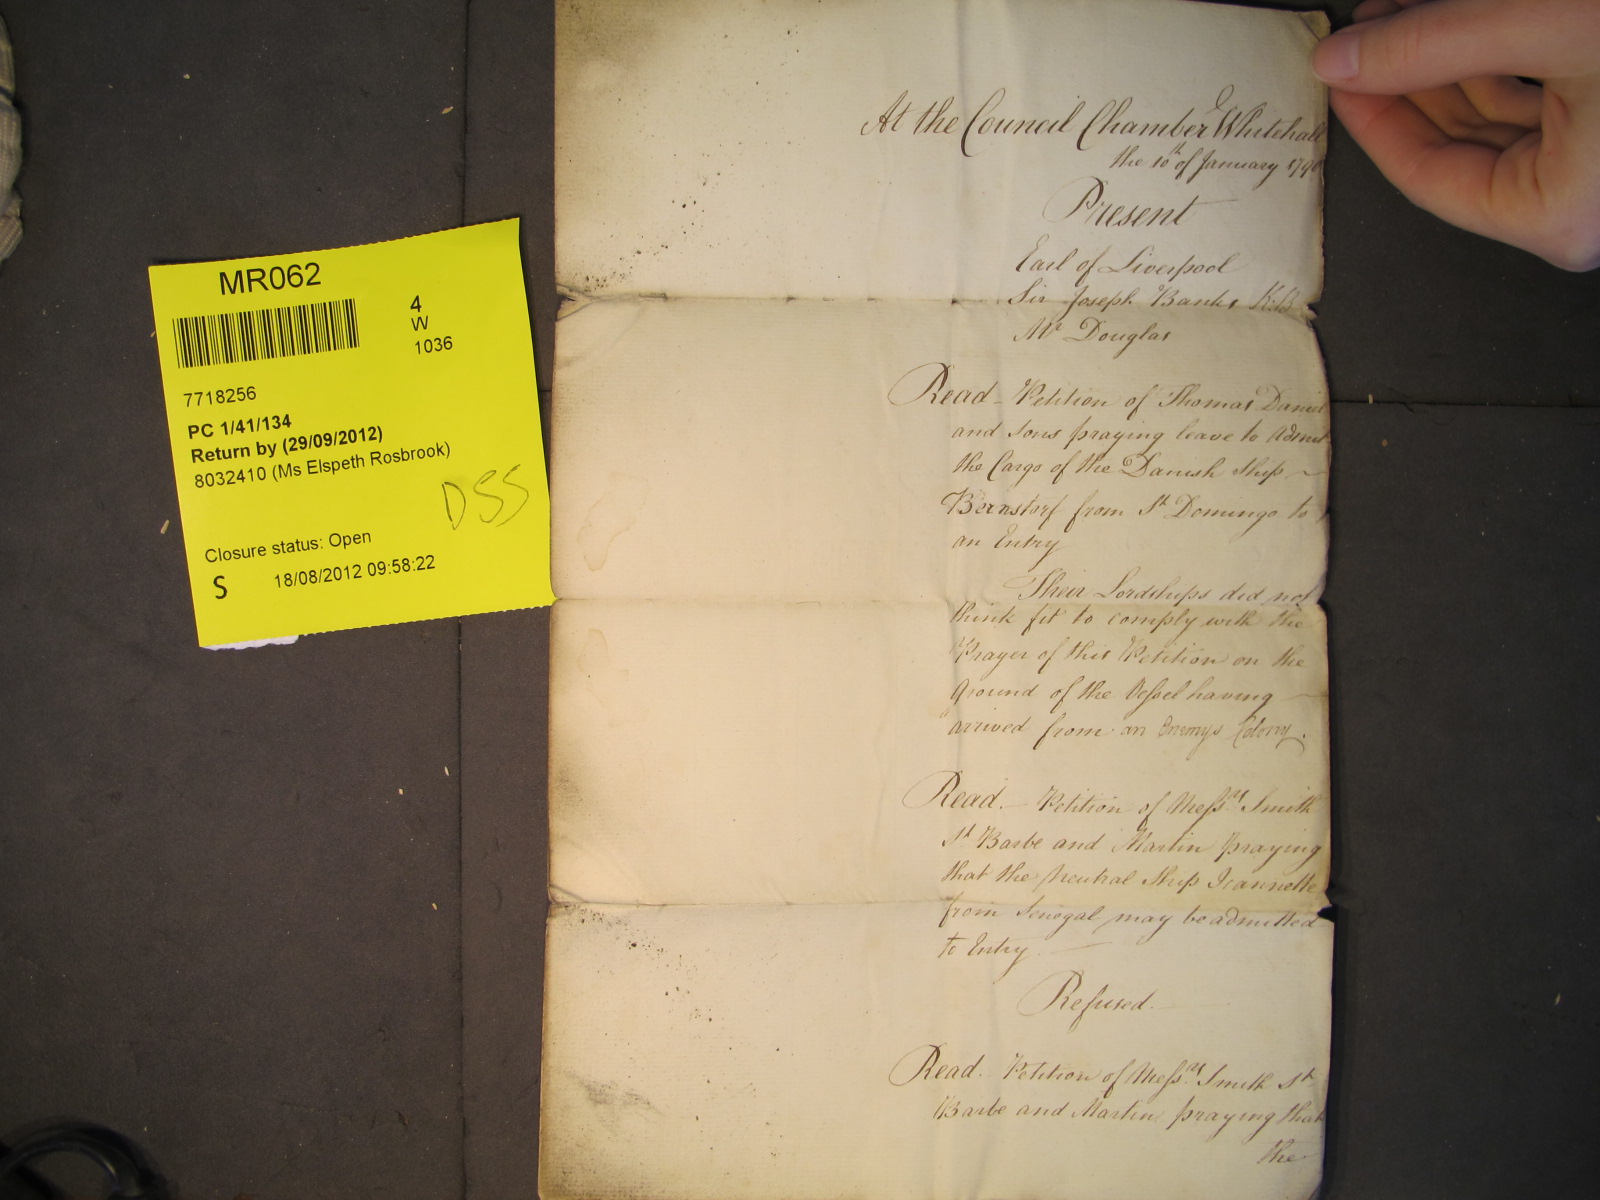 MR062
4
W
1036
7718256
PC 1/41/134
Return by (29/09/2012)
8032410 (Ms Elspeth Rosbrook)
DSS
Closure status: Open
S 18/08/2012 09:58:22
At the Council Chamber Whitehall
the 10th of January 179
Present
Earl of Liverpool
Sir Joseph Banks K:B
Mr Douglas
Read - Petition of Thomas Daniel
and Sons praying leave to admit
the Cargo of the Danish Ship
Bernstorf from St Domingo to
an Entry
Their Lordships did not
think fit to comply with the
Prayer of this Petition on the
Ground of the Vessel having
arrived from an Enemys Colony.
Read. - Petition of Messrs Smith
St Barbe and Martin praying
that the Neutral Ship Jeannette
from Senegal may be admitted
to Entry.
Refused.
Read. Petition of Messrs Smith St
Barbe and Martin praying that
the